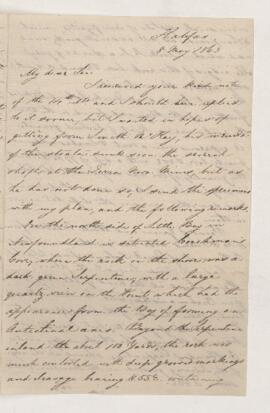 Halifax
8 May 1863
My dear Sir
I received your kind note
of the 14th and I should have replied
to it sooner, but I waited in hopes of
getting from Smith McKay, his
of the strata sunk
shafts at the Terra Nova Mines, but as
he has not done so, I send the specimens
with my plan, and the following remarks.
On the north side of Little Bay in
Newfoundland is situated
Cove, where the rock on the shore was a
dark green Serpentine, with a large
quartz vein on the Point which had the
appearance from the Bay of forming an
Anticlinal axis. Beyond the Serpentine
inland about 100 Yards, the rock was
much contorted with deep grooved markings
and cleavage bearing N 55 E. containing